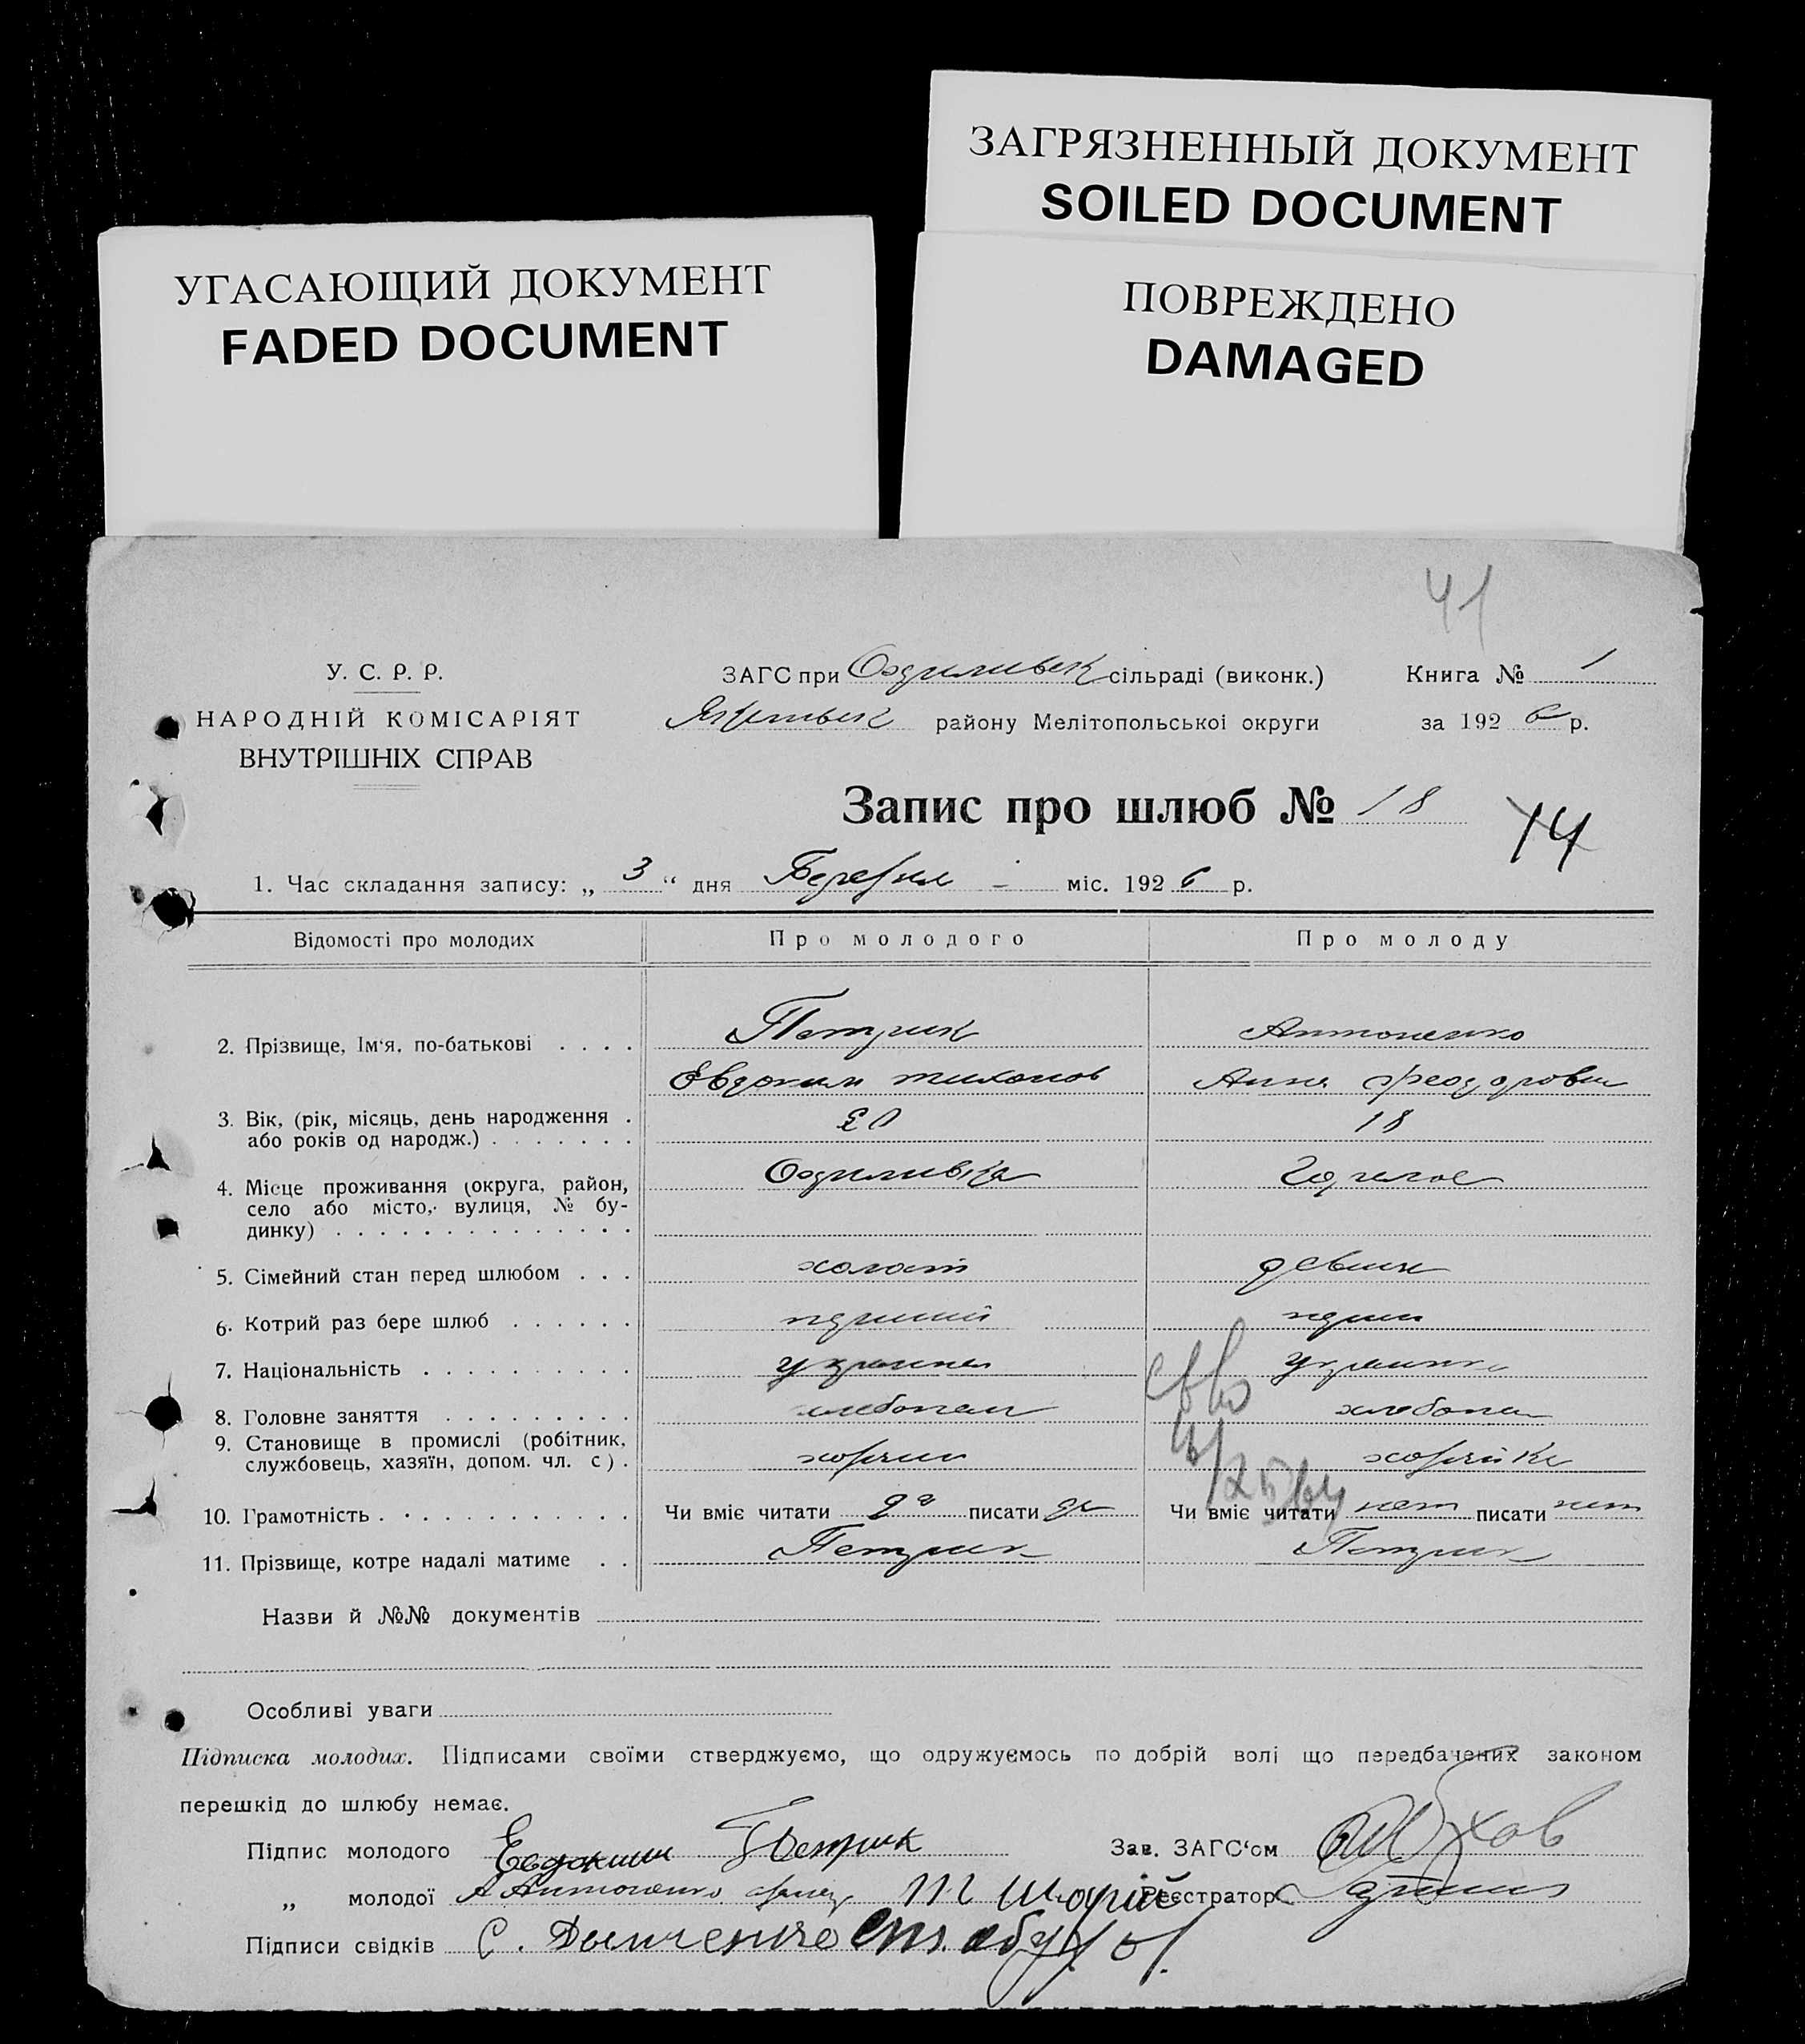 ЗАГРЯЗНЕННЫЙ ДОКУМЕНТ
SOILED DOCUMENT
УГАСАЮЩИЙ ДОКУМЕНТ
FADED DOCUMENT
ПОВРЕЖДЕНО
DAMAGED
41
У. С. Р. Р.
НАРОДНІЙ КОМІСАРІЯТ
ВНУТРІШНІХ СПРАВ
ЗАГС при сільраді (виконк.) Книга № 1
району Мелітопольської округи за 1926 р.
Запис про шлюб № 18
14
1. Час складання запису: „ 3 “ дня Березня міс. 1926 р.
Відомості про молодих Про молодого Про молоду
2. Прізвище, Ім‘я, по-батькові . . . . Петрик Антоненко
Евдоким тихонов Анна феодоровна
3. Вік, (рік, місяць, день народження . або років од народж.) . . . . . . . 20 18
4. Місце проживання (округа, район, село або місто, вулиця, № будинку) . . . . . . . . . . . . . .
5. Сімейний стан перед шлюбом . . . холост девиця
6. Котрий раз бере шлюб . . . . . . перший перши
7. Національність . . . . . . . . . . українец украинка
8. Головне заняття . . . . . . . . . хлебопаш хлебопаш
9. Становище в промислі (робітник, службовець, хазяїн, допом. чл. с) . хозяин хозяйка
10. Грамотність . . . . . . . . . . . . Чи вміє читати да писати да Чи вміє читати нет писати нет
11. Прізвище, котре надалі матиме . . Петрик Петрик
Назви й №№ документів
Особливі уваги
Підписка молодих. Підписами своїми стверджуємо, що одружуємось по добрій волі що передбачених законом
перешкід до шлюбу немає.
Підпис молодого Евдоким Петрик Зав. ЗАГС‘ом
„ молодої А Антоненко Реєстратор
Підписи свідків С.